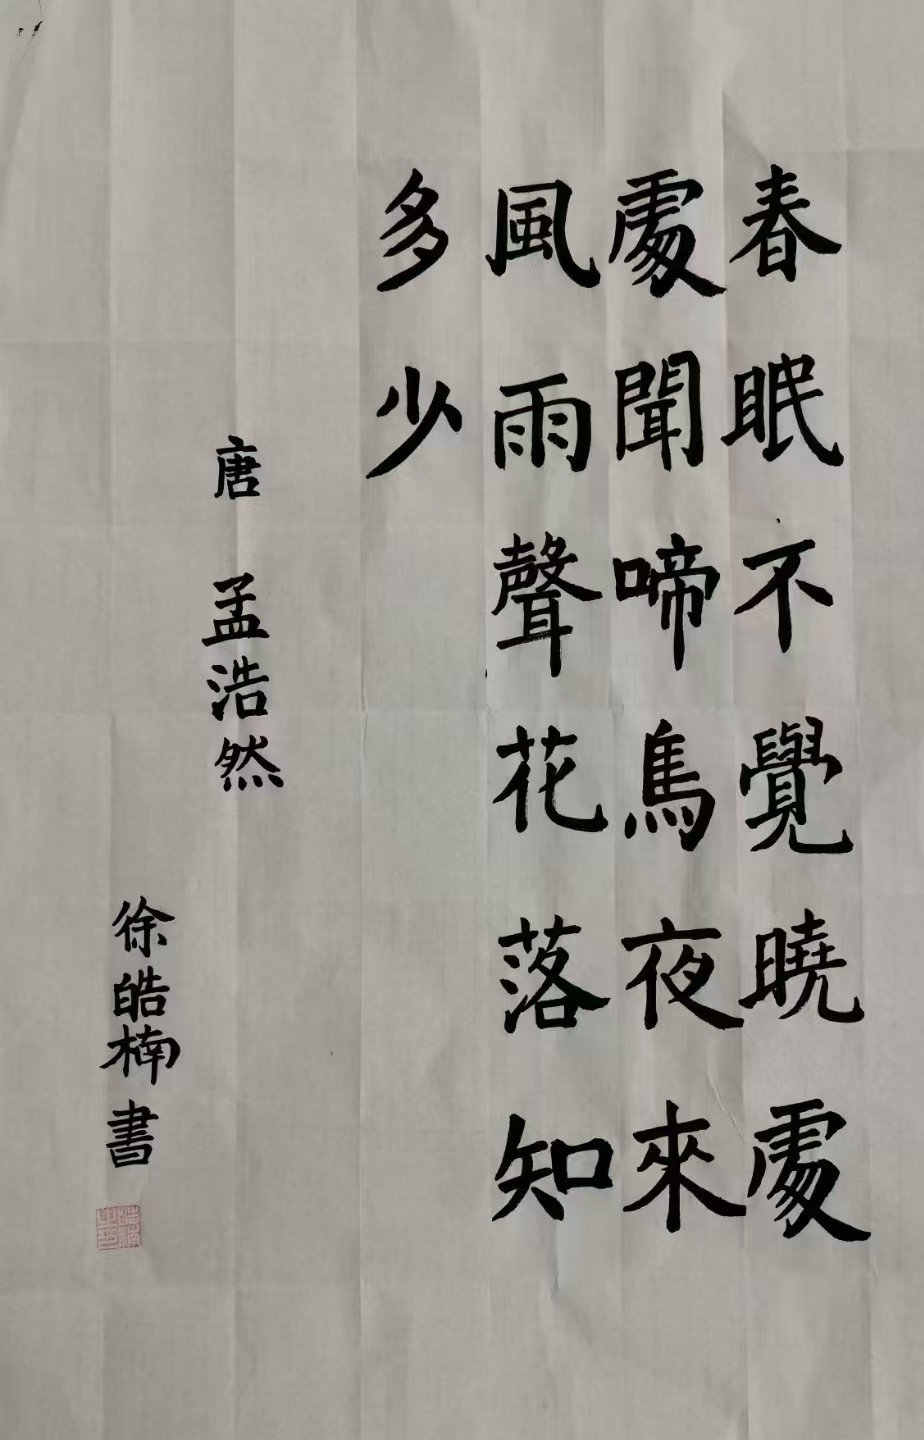 春眠不覺曉處
處聞啼鳥夜來
風雨聲花落知
多少
唐 孟浩然
徐皓楠書